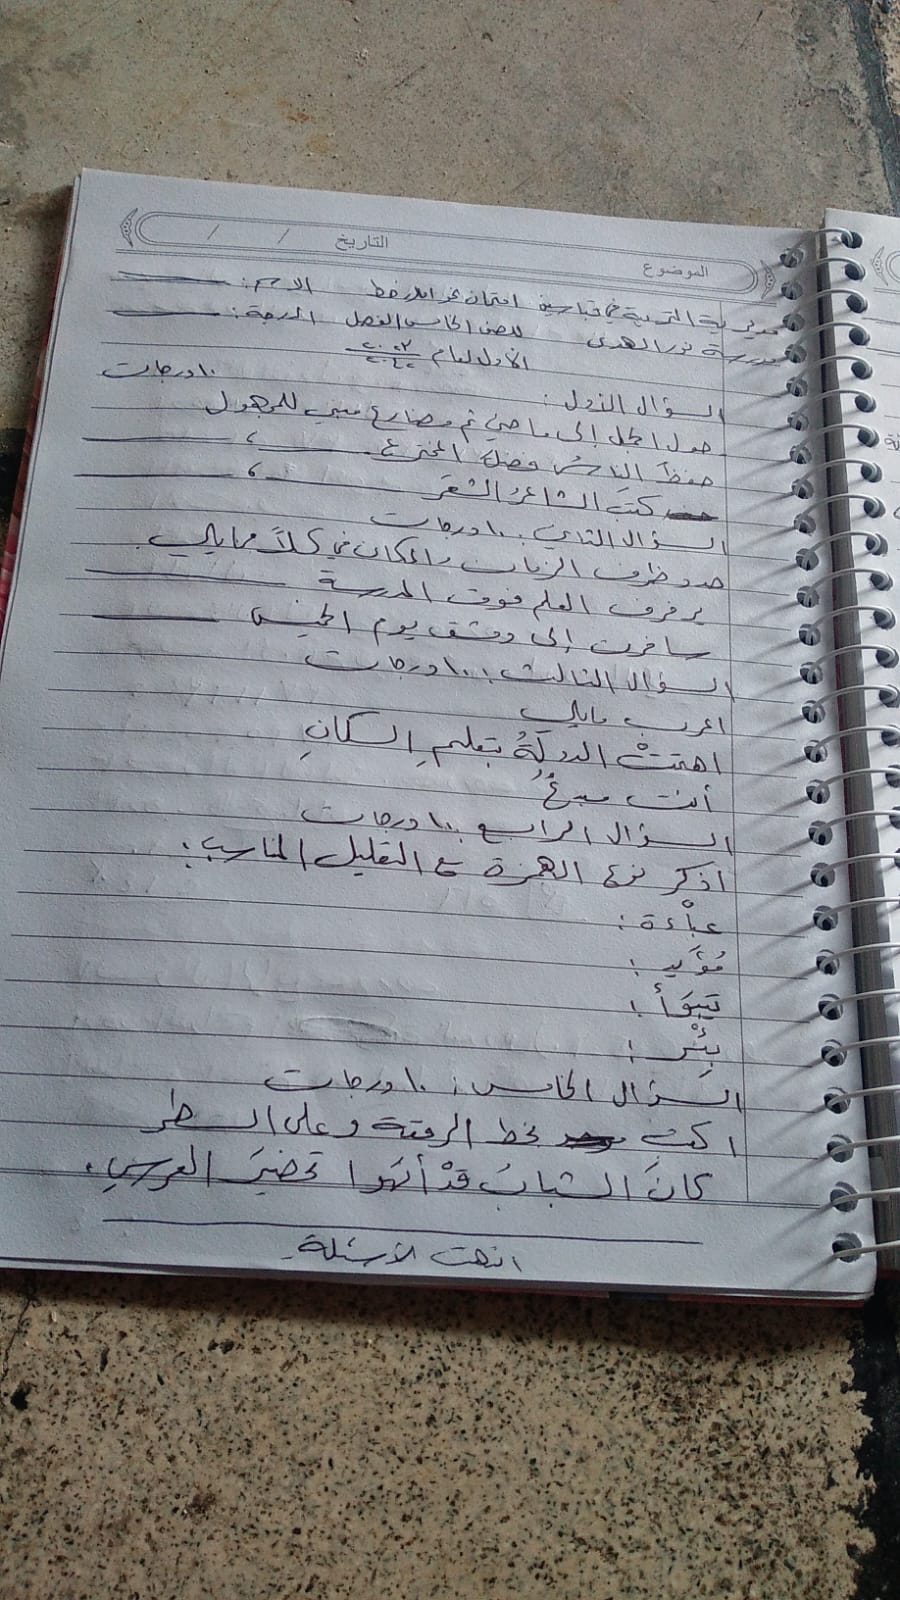 التاريخ / /
الموضوع
مديرية التربية في امتحان الاسم:
مدرسة نور الهدى للصف الخامس الفصل الدرجة:
الأول لعام ٢٠٢٣
السؤال الأول: ١٠ درجات
حول الجمل إلى ماضي ثم مضارع مبني للمجهول
حفظَ الناسُ فضلَ المخترع ،
كتبَ الشاعرُ الشعرَ ،
السؤال الثاني: ١٠ درجات
حدد ظرف الزمان والمكان في كلاً مما يلي.
يرفرف العلم فوق المدرسة
سافرت إلى دمشق يوم الخميس
السؤال الثالث: ١٠ درجات
اعرب مايلي
اهتمتْ الدولةُ بتعليمِ السكانِ
أنت مبدعٌ
السؤال الرابع: ١٠ درجات
اذكر نوع الهمزة مع التعليل المناسب:
عباْءة:
مُؤَيد:
يَتبوَأ:
بِئْر:
السؤال الخامس: ١٠ درجات
اكتب بخط الرقعة وعلى السطر
كانَ الشبابُ قدْ أنهَوا تحضيرَ العرسِ.
انتهت الأسئلة